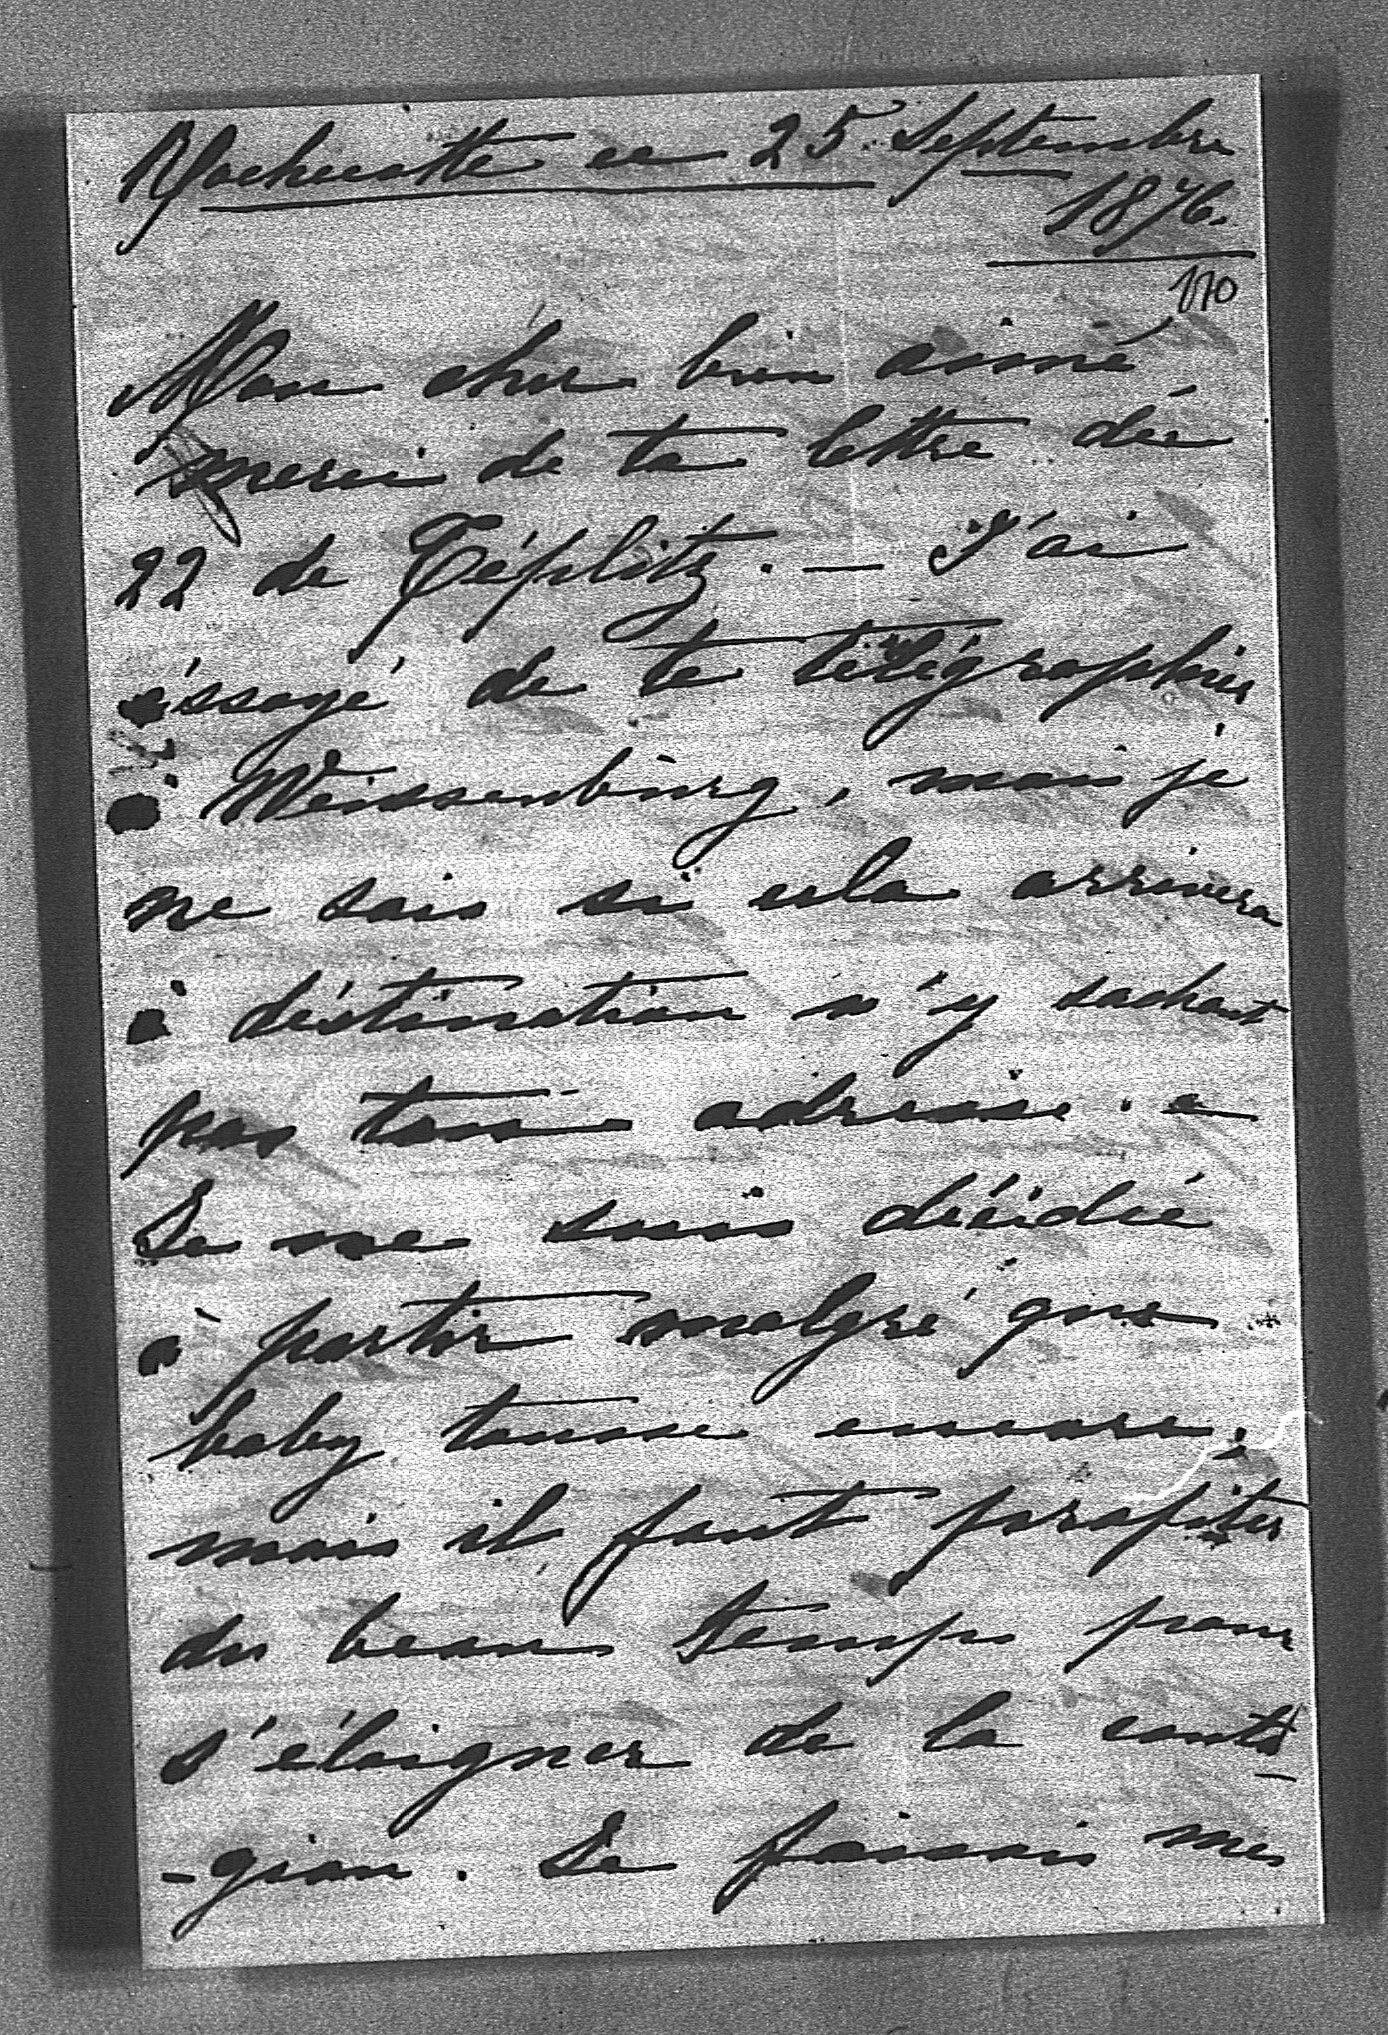 Rochecotte ce 25. Septembre
1876.
110
Mon cher bien aimé,
merci de ta lettre du
22 de Téplitz. — J'ai
éssayé de te télégraphier
à Weissenburg, mais je
ne sais si cela arrivera
à déstination n'y sachant
pas ton adresse. —
Je me suis décidée
à partir malgré que
baby tousse encore,
mais il faut profiter
du beau temps pour
s'éloigner de la conta
-gion. Je faisais mes